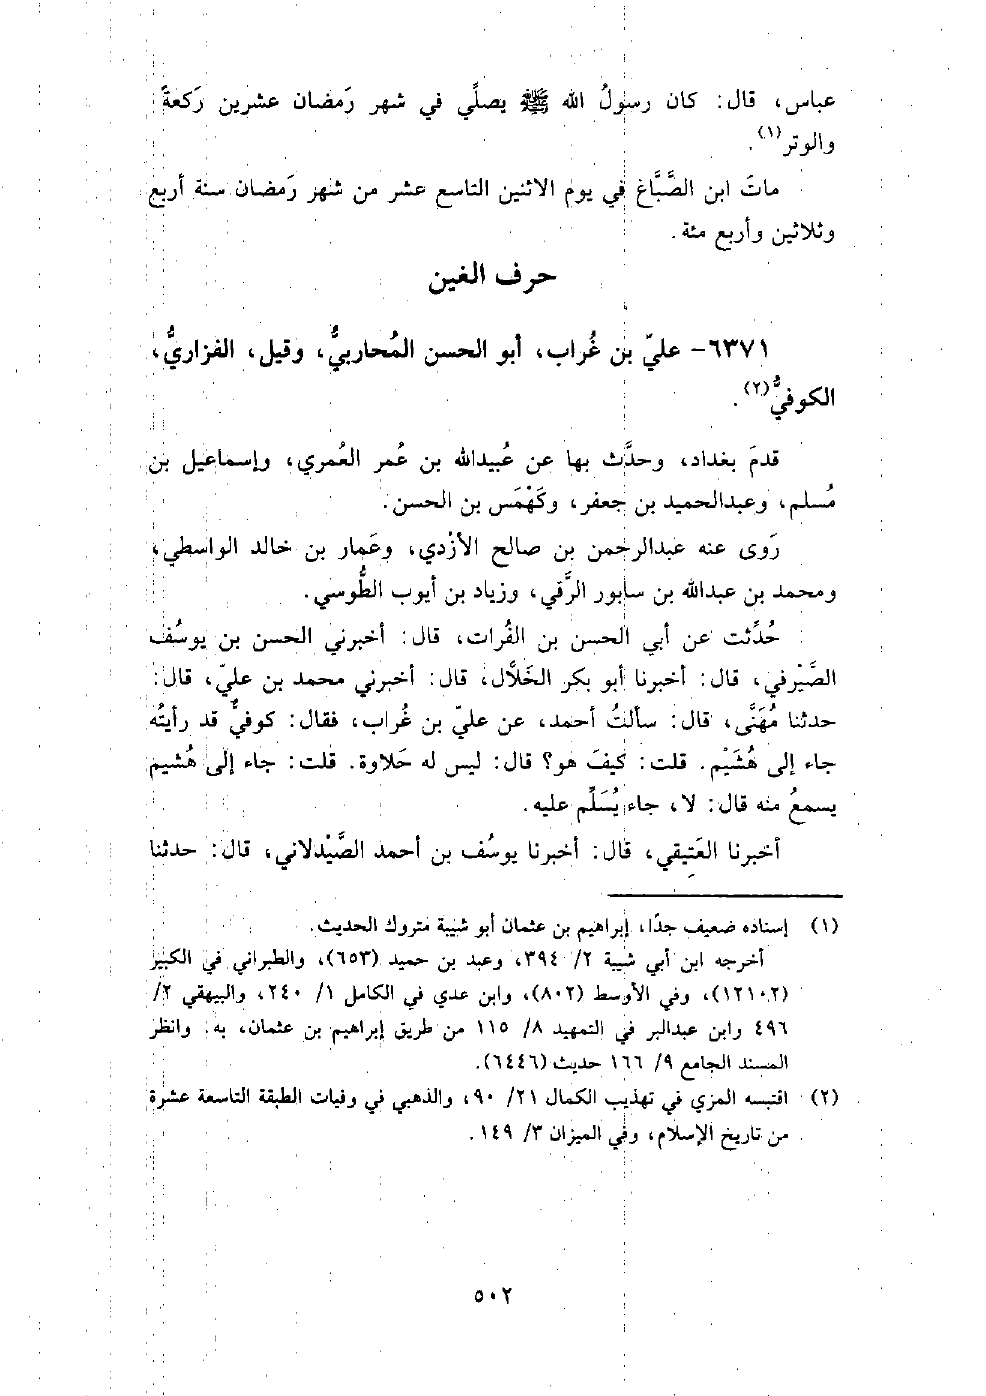 عباس، قال: كان رسولُ الله ﷺ يصلَّي في شهر رَمضان عشرين رَكعةً
والوتر(١).
ماتَ ابن الصَّبَّاغ في يوم الاثنين التاسع عشر من شهر رَمضان سنة أربع
وثلاثين وأربع مئة.
حرف الغين
٦٣٧١- عليّ بن غُراب، أبو الحسن المُحاربيُّ، وقيل، الفزاريُّ،
الكوفيُّ(٢).
قدمَ بغداد، وحدَّث بها عن عُبيدالله بن عُمر العُمري، وإسماعيل بن
مُسلم، وعبدالحميد بن جعفر، وكَهْمَس بن الحسن.
رَوى عنه عبدالرحمن بن صالح الأزْدي، وعَمار بن خالد الواسطي،
ومحمد بن عبدالله بن سابور الرَّقي، وزياد بن أيوب الطُّوسي.
حُدِّثت عن أبي الحسن بن الفُرات، قال: أخبرني الحسن بن يوسُف
الصَّيْرفي، قال: أخبرنا أبو بكر الخَلَّال، قال: أخبرني محمد بن عليّ، قال:
حدثنا مُهَنَّى، قال: سألتُ أحمد، عن عليّ بن غُراب، فقال: كوفيٌّ قد رأيتُه
جاء إلى هُشَيْم. قلت: كيفَ هو؟ قال: ليس له حَلاوة. قلت: جاء إلى هُشيم
يسمعُ منه قال: لا، جاء يُسَلِّم عليه.
أخبرنا العَتيقي، قال: أخبرنا يوسُف بن أحمد الصَّيْدلاني، قال: حدثنا
(١) إسناده ضعيف جدًا، إبراهيم بن عثمان أبو شيبة متروك الحديث.
أخرجه ابن أبي شيبة ٢/ ٣٩٤، وعبد بن حميد (٦٥٣)، والطبراني في الكبير
(١٢١٠٢)، وفي الأوسط (٨٠٢)، وابن عدي في الكامل ١/ ٢٤٠، والبيهقي ٢/
٤٩٦ وابن عبدالبر في التمهيد ٨/ ١١٥ من طريق إبراهيم بن عثمان، به. وانظر
المسند الجامع ٩/ ١٦٦ حديث (٦٤٤٦).
(٢) اقتبسه المزي في تهذيب الكمال ٢١/ ٩٠، والذهبي في وفيات الطبقة التاسعة عشرة
من تاريخ الإسلام، وفي الميزان ٣/ ١٤٩.
٥٠٢